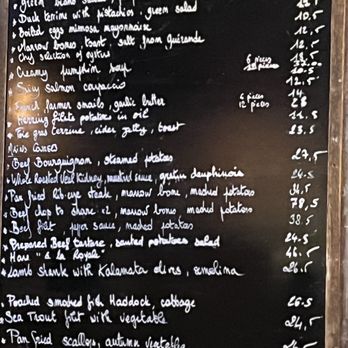 green beans 12.5
Duck terrine with pistachios, green salad 10.5
Boiled eggs mimosa mayonnaise 12.5
Marrow bones, toast, salt from Guérande 12.5
Chef selection of oysters 6 pieces
Creamy pumpkin soup
Spicy salmon carpaccio 14
French farmer snails, garlic butter 6 pieces 12 pieces 28
Herring filets potatoes in oil 11.5
Foie gras terrine, cider jelly, toast 23.5
Beef Bourguignon, steamed potatoes 27,5
Whole Roasted Veal Kidney, mustard sauce, gratin dauphinois 24.5
Pan fried rib-eye steak, marrow bone, mashed potatoes 34.5
Beef chop to share x2, marrow bones, mashed potatoes 78,5
Beef filet, pepper sauce, mashed potatoes 38.5
Prepared Beef tartare, sauted potatoes salad 24.5
Hare "à la Royale" 46.5
Lamb shank with Kalamata olives, semolina 26.5
Poached smoked fish Haddock, cabbage 26.5
Sea Trout filet with vegetable 24,5
Pan fried scallops, autumn vegetables